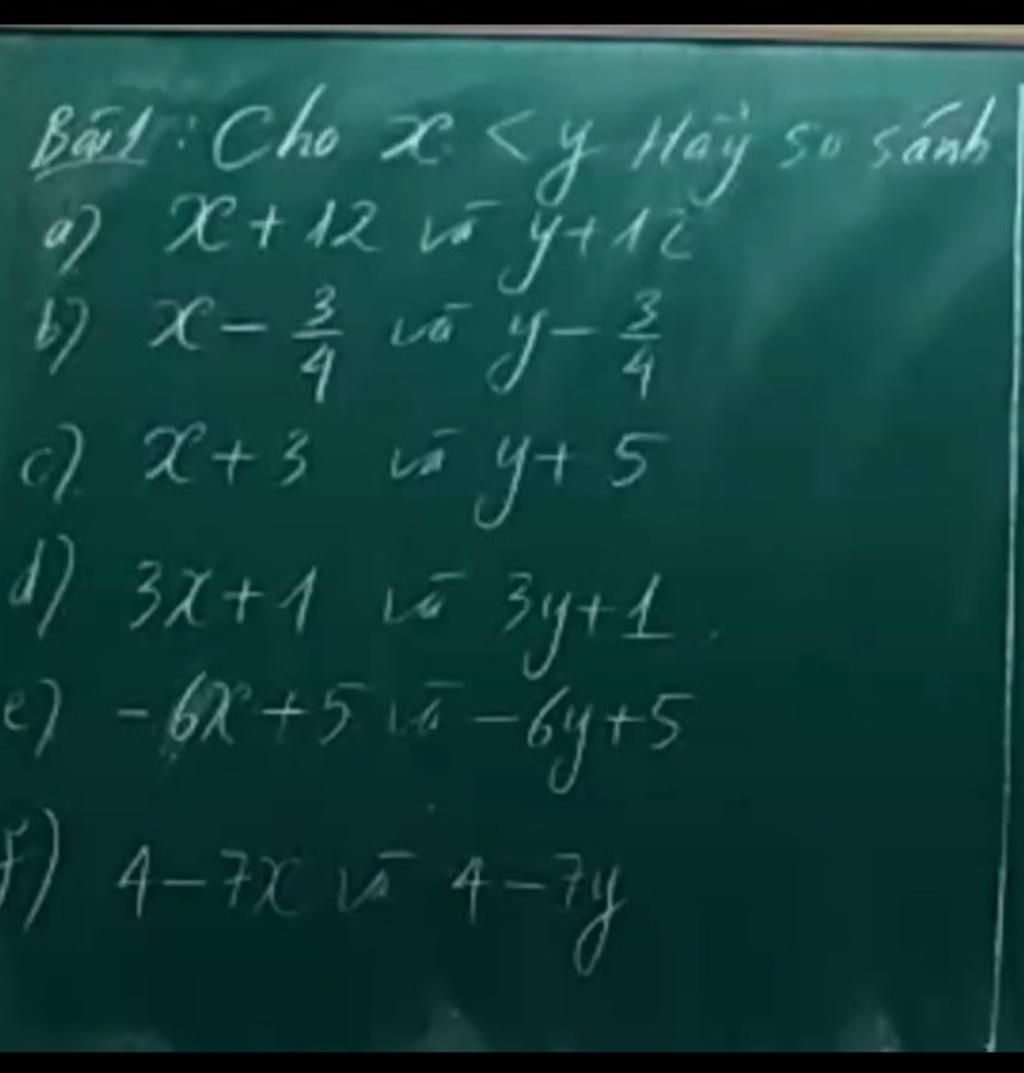 Bài 1: Cho x < y Hãy so sánh
a) x + 12 và y + 12
b) x - 3/4 và y - 3/4
c) x + 3 và y + 5
d) 3x + 1 và 3y + 1.
e) - 6x + 5 và - 6y + 5
f) 4 - 7x và 4 - 7y